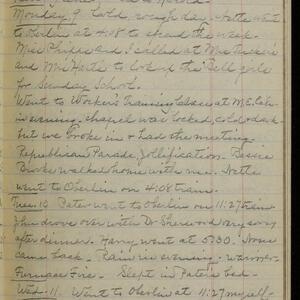 Monday 9. Cold, rough day. Nette went
to Oberlin at 4:18 to spend the week.
Miss Phelps and I called at Mrs
and Mrs to look up the Bell girls
for Sunday School.
Went to Worker's Training Class at M.E. Ch.
in evening. Chapel was locked, cold & dark
but we broke in & had the meeting.
Republican Parade, Jollification. Bessie
Brooks walked home with me. Nette
went to Oberlin on 4:08 train.
Tues. 10 Pater went to Oberlin on 11:27 train
John drove over with Dr Sherwood
after dinner. Harry went at 5:30. Some
came back. Rain in evening. warmer.
Furnace Fire. Slept in Pater's bed.
Wed. 11. Went to Oberlin at 11:27 myself